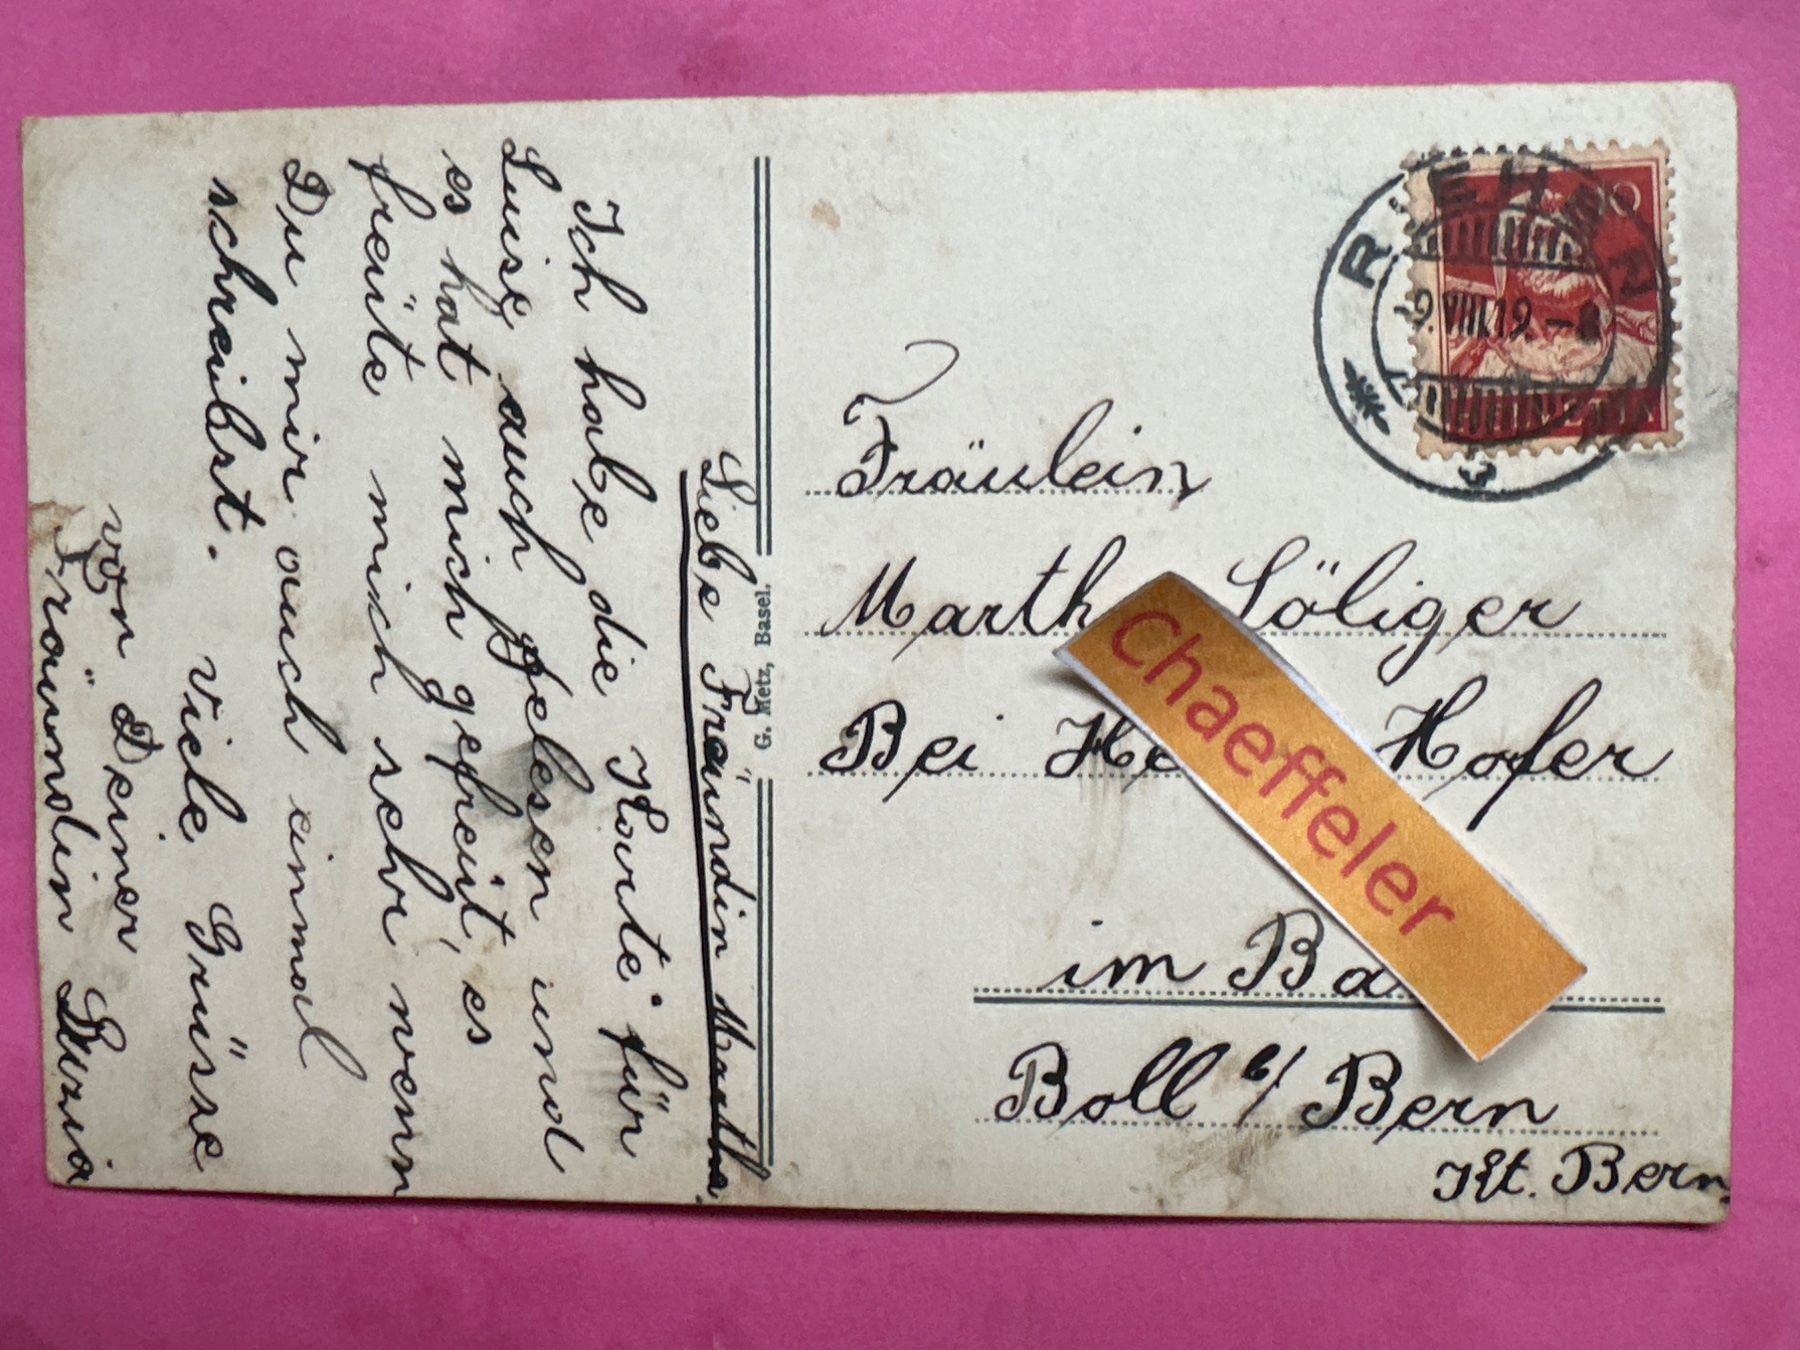 Liebe Fräundin Martha
Ich habe die Karte für
Luise auch gelesen und
es hat mich gefreit, es
freüte mich sehr wenn
Du mir auch einmal
schreibst. Viele Grüsse
von Deiner
Fräundin
G. Metz, Basel.
10
9.VIII.19.
Fräulein
Marth Söliger
Bei He Hofer
im Ba
Boll b/ Bern
Kt. Bern.
Chaeffeler